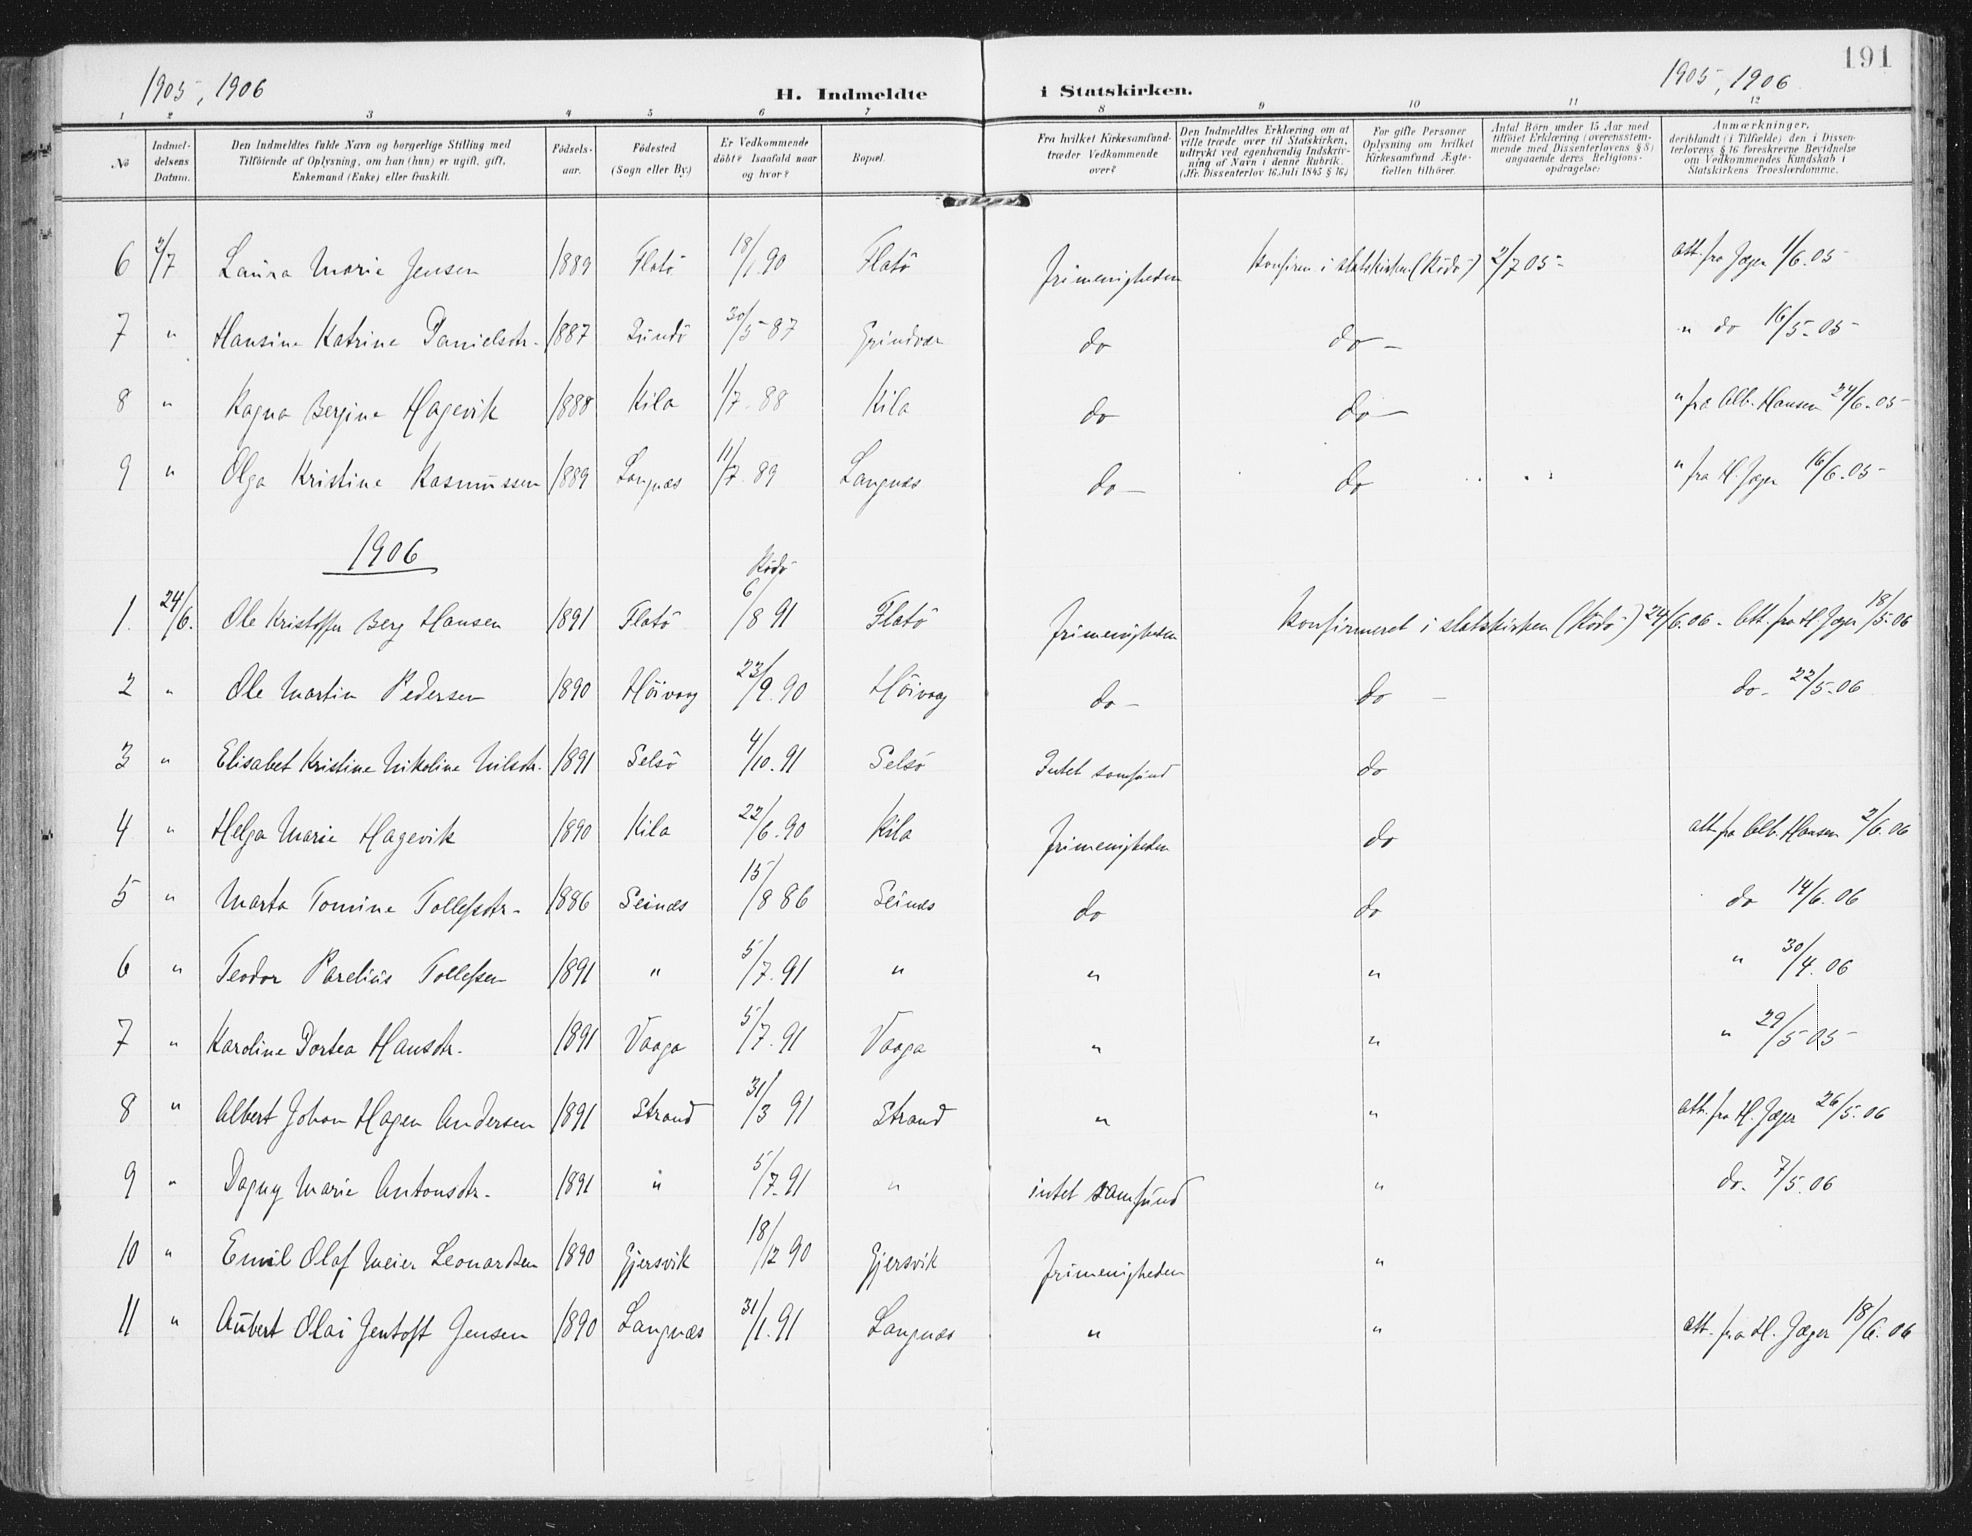 191
1905, 1906
1905, 1906
H. Indmeldte i Statskirken.
1 2 3 4 5 6 7 8 9 10 11 12
No
Indmeldelsens Datum.
Den Indmeldtes fulde Navn og borgerlige Stilling med
Tilföiende af Oplysning, om han (hun) er ugift, gift,
Enkemand (Enke) eller fraskilt.
Födselsaar.
Födested
(Sogn eller By.)
Er Vedkommende
döbt? Isaafald naar
og hvor?
Bopæl.
Fra hvilket Kirkesamfund
træder Vedkommende
over?
Den Indmeldtes Erklæring om at
ville træde over til Statskirken,
udtrykt ved egenhændig Indskrivning
af Navn i denne Rubrik.
(Jfr. Dissenterlov 16 Juli 1845 § 16.)
For gifte Personer
Oplysning om hvilket
Kirkesamfund Ægtefællen
tilhörer.
Antal Börn under 15 Aar med
tilföiet Erklæring (overensstemmende
med Dissenterlovens § 8)
angaaende deres Religionsopdragelse:
Anmærkninger,
deriblandt (i Tilfælde) den i Dissenterlovens
§ 16 foreskrevne Bevidnelse
om Vedkommendes Kundskab i
Statskirkens Troeslærdomme.
6 2/7 Laura Marie Jensen 1889 Flatö 18/1 90 Flatö frimenigheden konfirm. i statskirken (Rödö) 2/7 05 att. fra Jæger 1/6. 05
7 " Hansine Katrine Danielsdtr. 1887 Sundö 30/5 87 Grindvær do do - " do 16/5. 05
8 " Ragna Bergine Hagevik 1888 Kila 1/7. 88 Kila do do - " fra Alb. Hansen 24/6. 05
9 " Olga Kristine Rasmussen 1889 Langnæs 11/7. 89 Langnæs do - do " fra H. Jæger 16/6. 05
1906
Rödö
1. 24/6. Ole Kristoffer Berg Hansen 1891 Flatö 6/8 91 Flatö frimenigheden konfirmeret i statskirken (Rödö) 24/6. 06 - Att. fra H. Jæger 18/5. 06
2 " Ole Martin Pedersen 1890 Höivaag 23/9. 90 Höivaag do - do - do - 22/5. 06
3 " Elisabet Kristine Nikoline Nilsdtr. 1891 Selsö 4/10. 91 Selsö Intet samfund do
4 " Helga Marie Hagevik 1890 Kila 22/6. 90 Kila frimenigheden do att. fra Alb. Hansen 2/6. 06
5 " Marta Tomine Tollefsdtr. 1886 Seinæs 15/8 86 Seinæs do do do 14/6. 06
6 " Teodor Parelius Tollefsen 1891 " 5/7. 91 " " " " 30/4. 06
7 " Karoline Dortea Hansdtr. 1891 Vaaga 5/7. 91 Vaaga " " " 29/5 05
8 " Albert Johan Hagen Andersen 1891 Strand 31/3 91 Strand " " att. fra H. Jæger 26/5. 06
9 " Dagny Marie Antonsdtr. 1891 " 5/7. 91 " intet samfund " do. 7/5. 06
10 " Emil Olaf Meier Leonardsen 1890 Gjersvik 18/12 90 Gjersvik frimenigheden "
11 " Aubert Olai Jentoft Jensen 1890 Langnæs 31/1. 91 Langnæs " " att. fra H. Jæger 18/6. 06